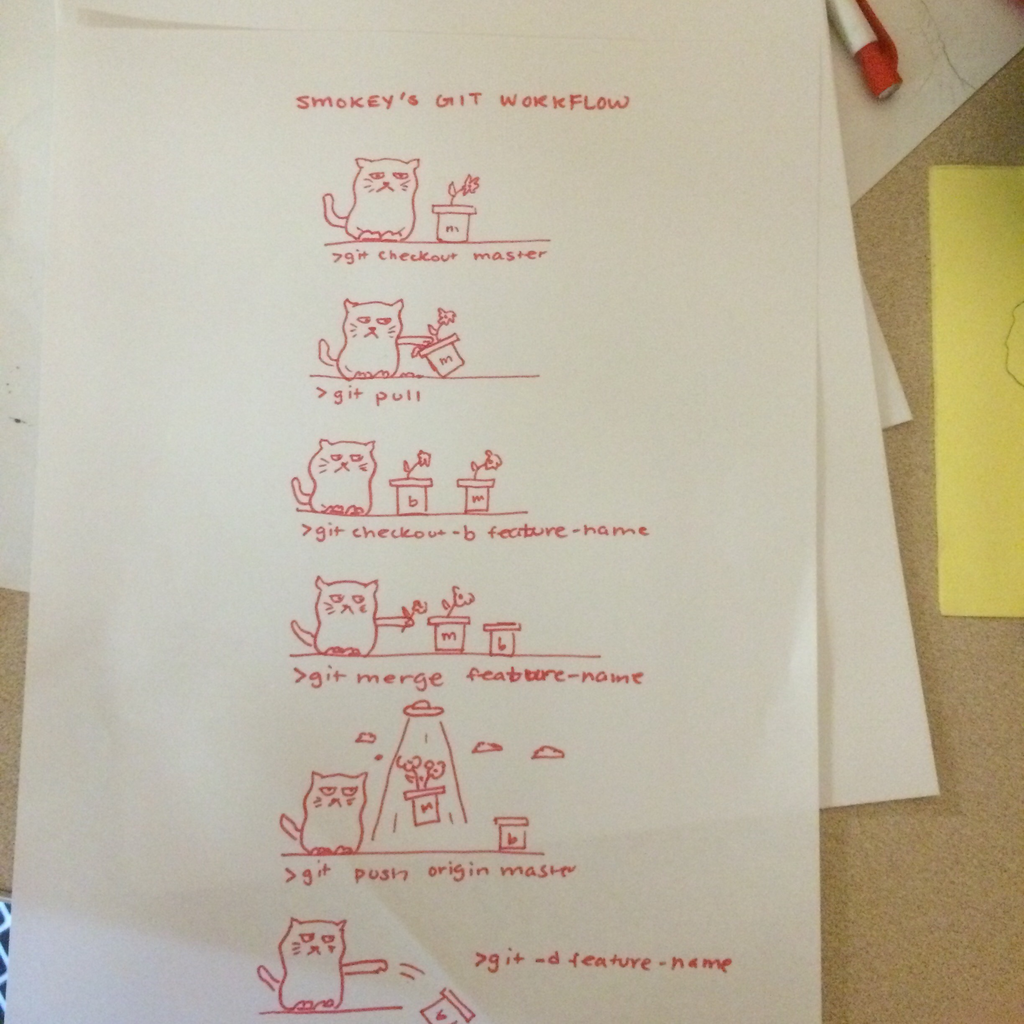 SMOKEY'S GIT WORKFLOW
m
>git checkout master
m
>git pull
b m
>git checkout -b feature-name
m b
>git merge feature-name
m
b
>git push origin master
>git -d feature-name
b